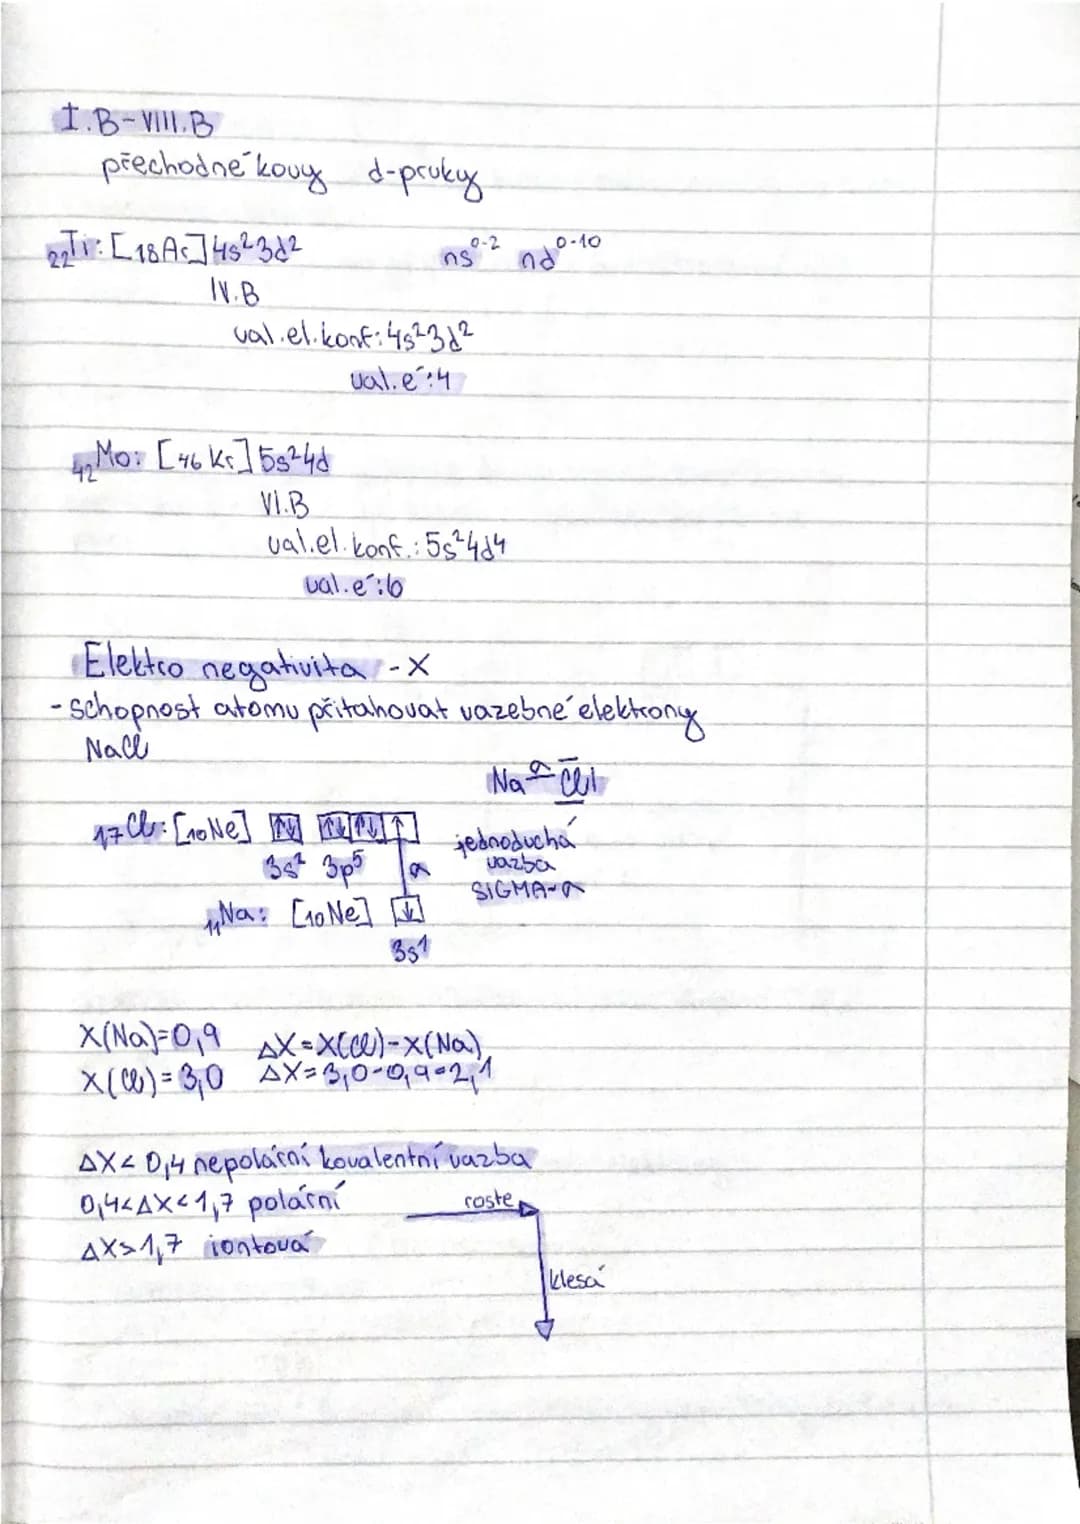 I.B-VIII.B
přechodné kovy d-prvky
₂₂Ti: [₁₈Ar] 4s² 3d² ns⁰⁻² nd⁰⁻¹⁰
IV.B
val.el.konf: 4s² 3d²
val.e⁻: 4
₄₂Mo: [₄₆Kr] 5s² 4d
VI.B
val.el.konf.: 5s² 4d⁴
val.e⁻: 6
Elektro negativita - X
- schopnost atomu přitahovat vazebné elektrony
NaCl
Na σ Cl
₁₇Cl: [₁₀Ne] ↑↓ ↑↓ ↑↓ ↑
3s² 3p⁵ σ
jednoduchá
vazba
SIGMA-σ
₁₁Na: [₁₀Ne] ↓
3s¹
X(Na)=0,9 ΔX=X(Cl)-X(Na)
X(Cl)=3,0 ΔX=3,0-0,9=2,1
ΔX<0,4 nepolární kovalentní vazba
0,4<ΔX<1,7 polární
roste
ΔX>1,7 iontová
klesá